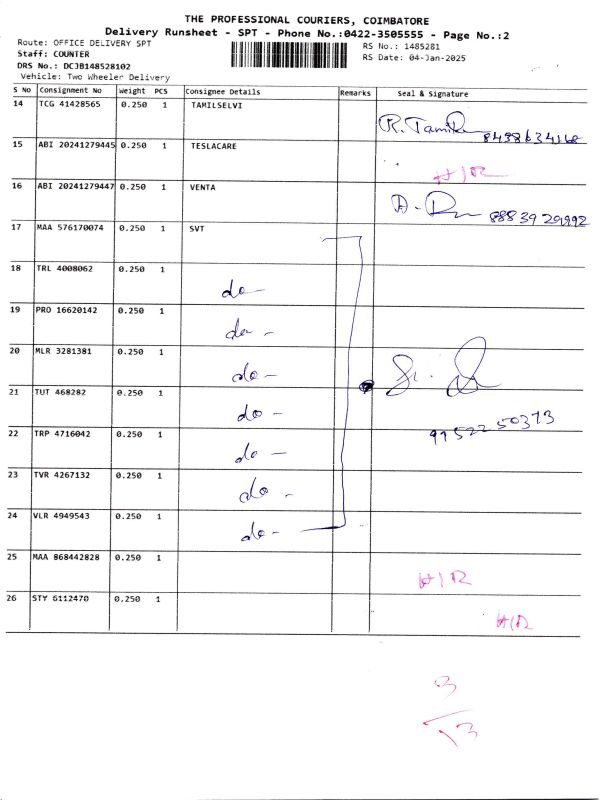 THE PROFESSIONAL COURIERS, COIMBATORE
Delivery Runsheet - SPT - Phone No.:0422-3505555 - Page No.:2
Route: OFFICE DELIVERY SPT
RS No.: 1485281
Staff: COUNTER
RS Date: 04-Jan-2025
DRS No.: DCJB148528102
Vehicle: Two Wheeler Delivery
S No Consignment No Weight PCS Consignee Details Remarks Seal & Signature
14 TCG 41428565 0.250 1 TAMILSELVI R. Tamil 8438634168
15 ABI 20241279445 0.250 1 TESLACARE H/R
16 ABI 20241279447 0.250 1 VENTA 8883929992
17 MAA 576170074 0.250 1 SVT
18 TRL 4008062 0.250 1 do -
19 PRO 16620142 0.250 1 do -
20 MLR 3281381 0.250 1 do -
21 TUT 468282 0.250 1 do - 9952250373
22 TRP 4716042 0.250 1 do -
23 TVR 4267132 0.250 1 do -
24 VLR 4949543 0.250 1 do -
25 MAA 868442828 0.250 1 H/R
26 STY 6112470 0.250 1 H/R
3
13